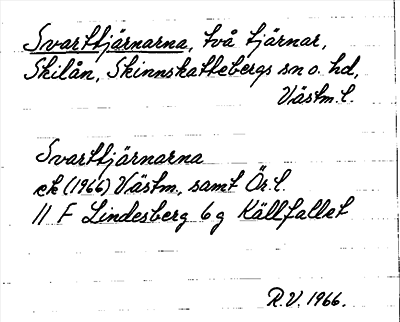 Svarttjärnarna, två tjärnar,
Skilån, Skinnskattebergs sn o. hd,
Västm. l.
Svarttjärnarna
ek (1966) Västm., samt Ör. l.
11 F Lindesberg 6 g Källfallet
R.V. 1966.